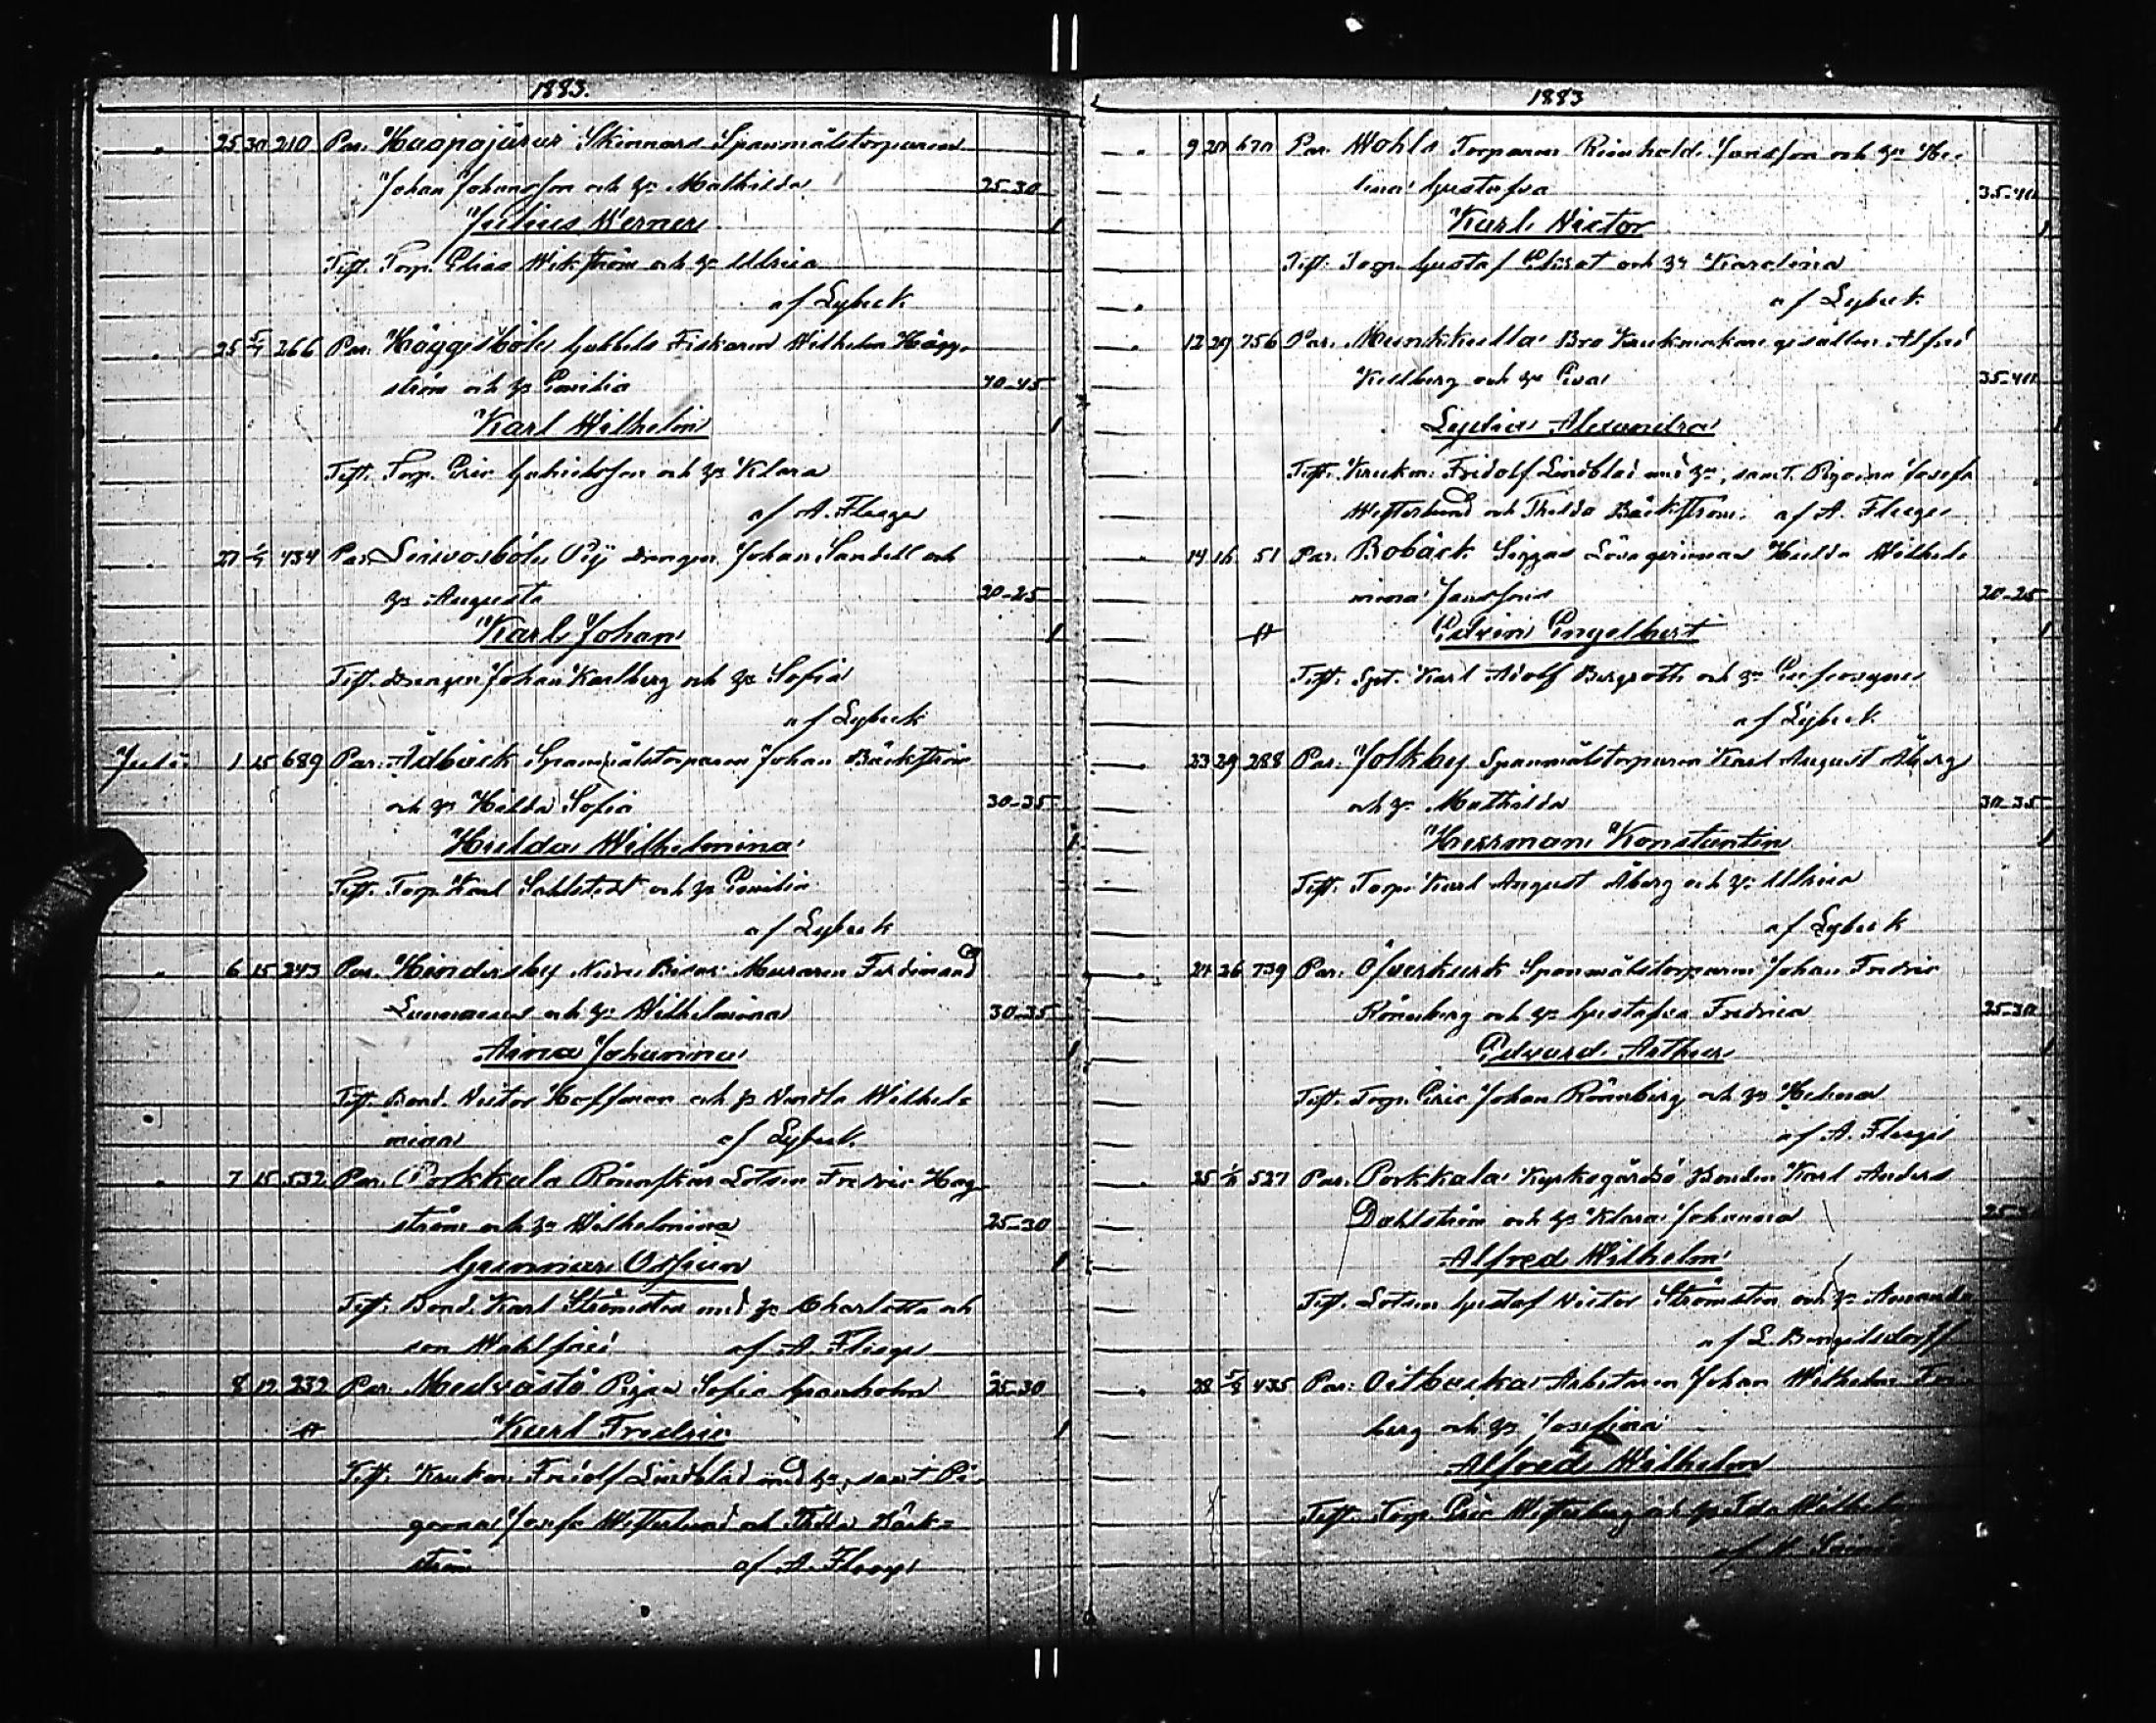 1883.
25 30 210 Par. Haapajärvi Skinnars Spanmålstorparen
Johan Johansson och h. Mathilda 25-30
Julius Werner 1
Test. Torp. Elias Wikström och h. Ulrica
af Lybeck
25 5/7 266 Par. Häggesböle Gabbels Fiskaren Wilhelm Hägg-
ström och h. Emilia 40-45
Karl Wilhelm 1
Test. Torp. Eric Gabrielsson och h. Klara
af A. Fleege
27 1/7 434 Par. Drengen Johan Sandell och
h. Augusta 20-25
Karl Johan 1
Test. Drengen Johan Karlberg och h. Sofia
af Lybeck
Juli 1 15 689 Par. Ådback Spanmålstorparen Johan Bäckström
och h. Hilda Sofia 30-35
Hulda Wilhelmina 1
Test. Torp. Karl Sahlstedt och h. Emilia
af Lybeck
6 15 243 Par. Hindersby Muraren Ferdinand
och h. Wilhelmina 30-35
Aina Johanna 1
Test. Bond. Victor Hoffman och h. Wendla Wilhel-
mina af Lybeck
7 15 532 Par. Porkkala Rönnskär Lotsen Fredric Hag-
ström och h. Wilhelmina 25-30
Gunnar Ossian 1
Test. Bond. Karl Strömsten med h. Charlotta och
son Walfrid af A. Fleege
8 12 232 Par. Medvastö Pigan Sofia Granholm 25-30
Karl Fredric 1
Test. Krukm. Fridolf Lindblad med h., samt Pi-
gorna Josefa Westerlund och Thilda Bäck-
ström af A. Fleege
1883
9 20 670 Par. Wohls Torparen Reinhold Jansson och h. He-
lena Gustafva 35-40
Karl Victor 1
Test. Torp. Gustaf och h. Karolina
af Lybeck
12 29 756 Par. Munkkulla Bro Krukmakaregesällen Alfred
Kullberg och h. Eva 35-40
Lydia Alexandra 1
Test. Krukm. Fridolf Lindblad med h., samt Pigorna Josefa
Westerlund och Thilda Bäckström. af A. Fleege
14 16 51 Par. Bobäck Siggas Lösqvinnan Hulda Wilhel-
mina Jansson 20-25
Edvin Engelbert 1
Test. Karl Adolf Bergroth och h. Eufrosyne
af Lybeck
23 29 288 Par. Jolkby Spanmålstorparen Karl August Åberg
och h. Mathilda 30-35
Herrman Konstantin 1
Test. Torp. Karl August Åberg och h. Ulrica
af Lybeck
24 26 739 Par. Öfverkurk Spanmålstorparen Johan Fredric
Rönnberg och h. Gustafva Fredrica 25-30
Edvard Arthur 1
Test. Torp. Eric Johan Rönnberg och h. Helena
af A. Fleege
25 1/8 527 Par. Porkkala Kyrkogårdsö Bonden Karl Anders
Dahlström och h. Klara Johanna
Alfred Wilhelm
Test. Lotsen Gustaf Victor Strömsten och h. Amanda
af L. Bengelsdorff
28 5/8 435 Par. Oitbacka Arbetaren Johan Wilhelm
berg och h. Josefina
Alfred Wilhelm
Test. Torp. Eric Westerberg och h. Ida